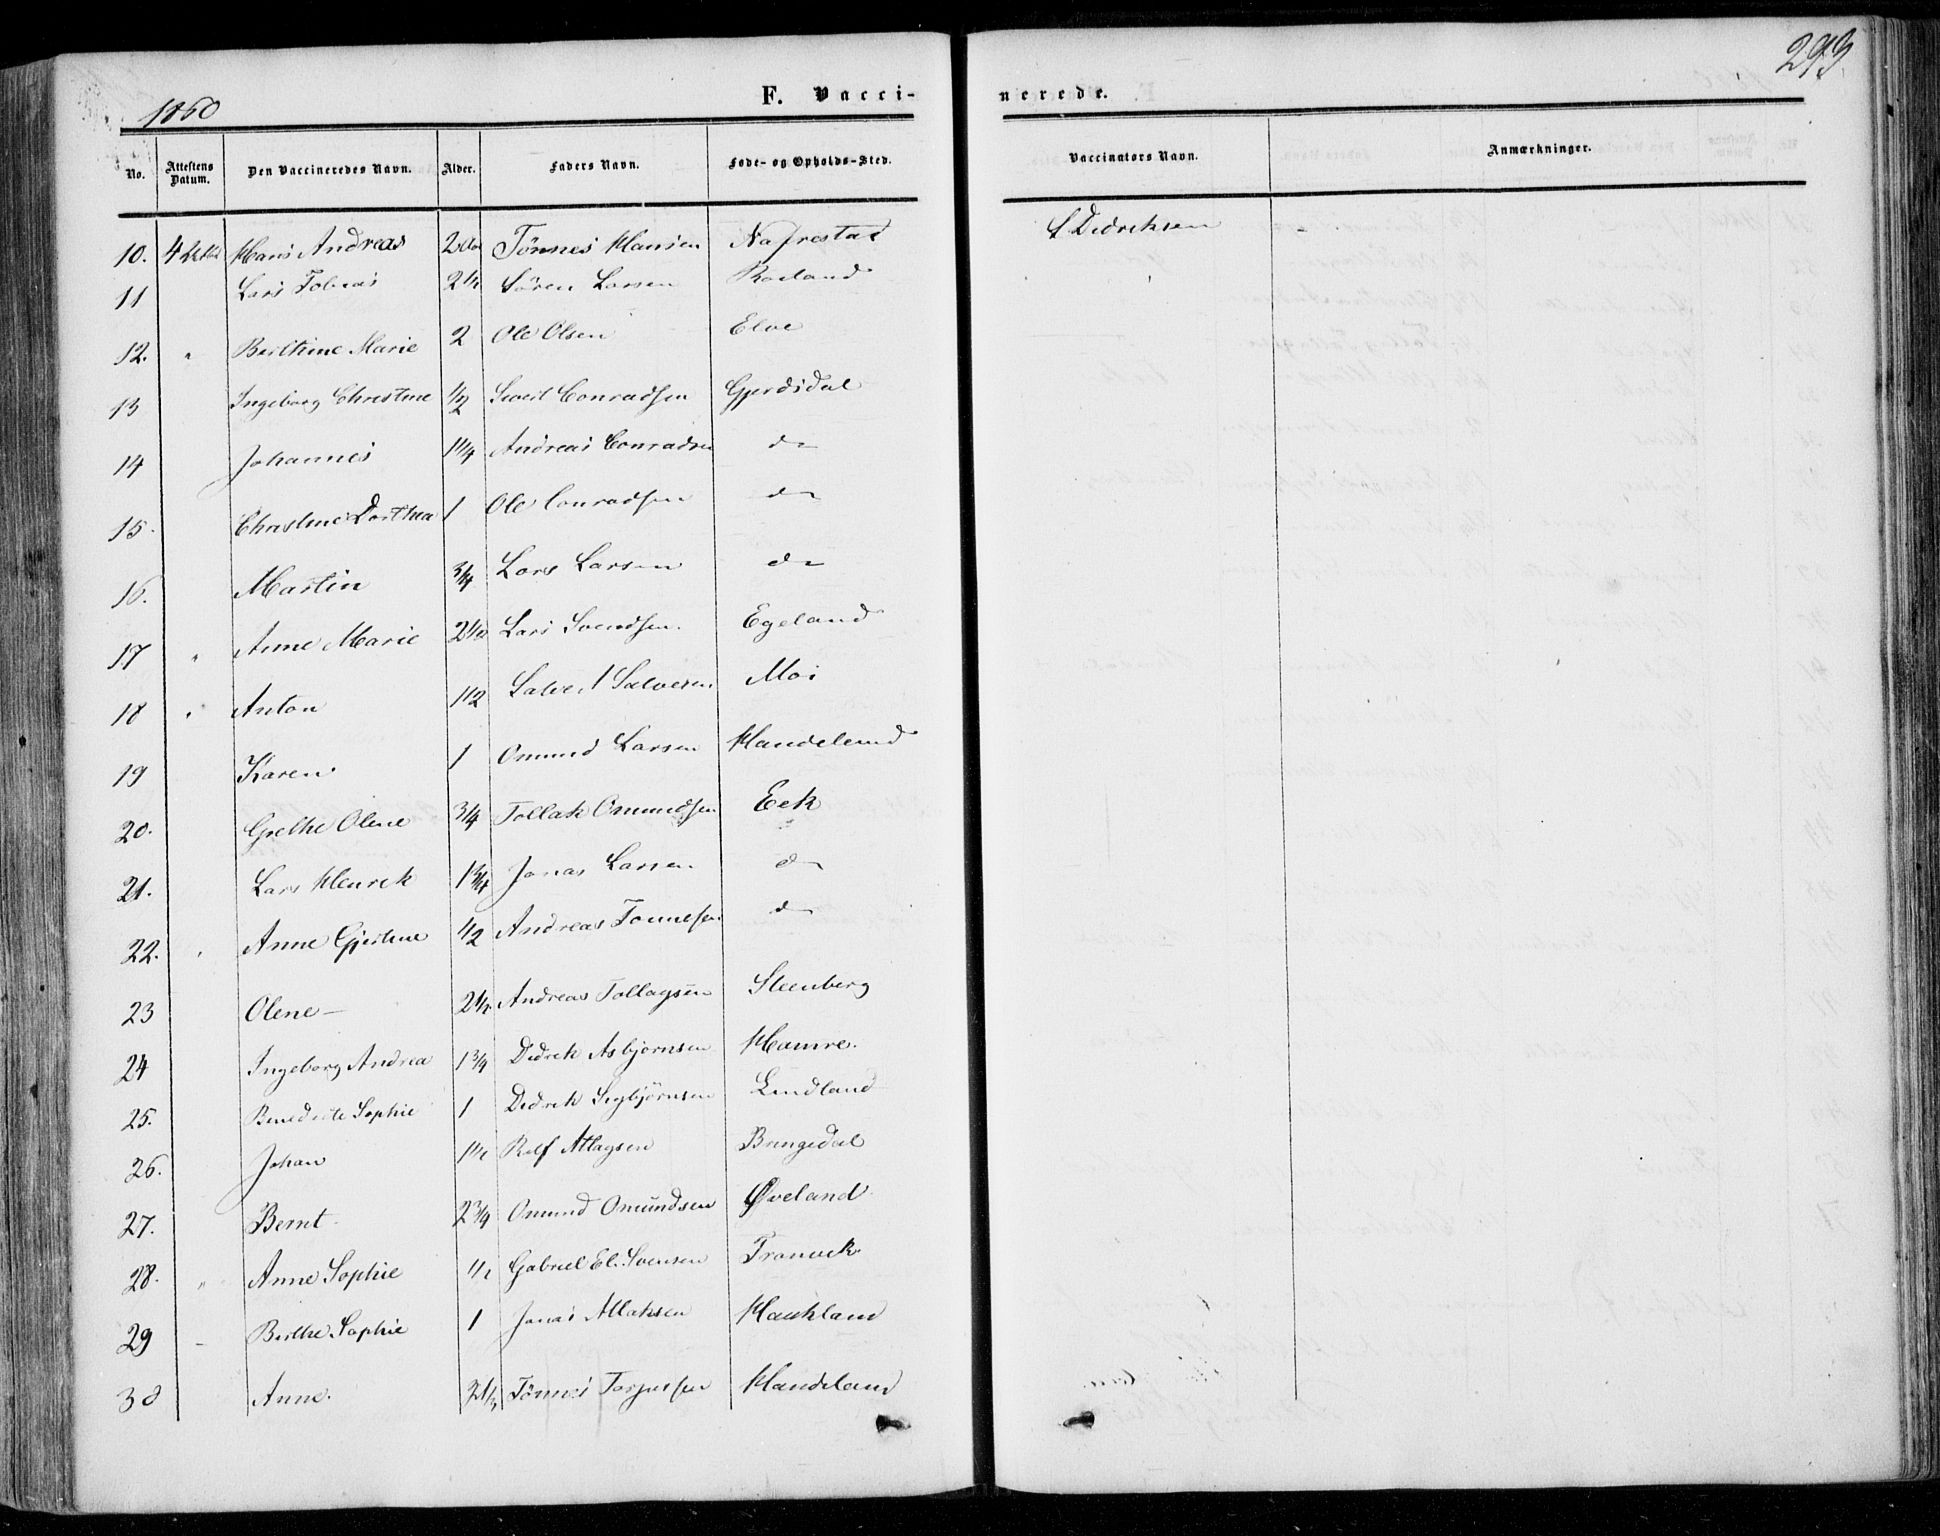 1860
F. Vacci-
nerede.
293
No. Attestens Datum. Den Vaccineredes Navn. Alder. Faders Navn. Føde- og Opholds-Sted. Vaccinators Navn. Anmærkninger.
10. 4 Hans Andreas 2 Tønnes Hansen S Didriksen
11 Lars Tobias 2½ Søren Larsen Roeland
12. " Berthine Marie 2 Ole Olsen Elve
13 Ingeborg Christine ½ Sivert Conradsen Gjerdsdal
14 Johannes 1¼ Andreas Conradsen do
15. Christine Dorthea 1 Ole Conradsen do
16. Martin ¾ Lars Larsen do
17 " Anne Marie 2½ Lars Svendsen. Egeland
18 " Anton 1½ Salve Salvesen Moi
19 Karen 1 Omund Larsen Handeland
20. Grethe Olene ¾ Tollak Omundsen Eek
21. Lars Henrik 1¾ Jonas Larsen do
22. " Anne Gjertine ½ Andreas Tønnesen do
23 Olene 2½ Andreas Tollagsen Steenberg
24 Ingeborg Andrea 1¾ Didrik Asbjørnsen Hamre.
25. Benedicte Sophie 1 Didrik Sigbjørnsen Lindland
26. Johan 1½ Rolf Atlagsen Bringedal
27. Bernt 2¾ Omund Omundsen Øveland
28. " Anne Sophie ½ Gabriel El. Svensen Tranvek
29 - Berthe Sophie 1 Jonas Atlaksen Haukland
30 Anne. 2½ Tønnes Torjussen Handeland